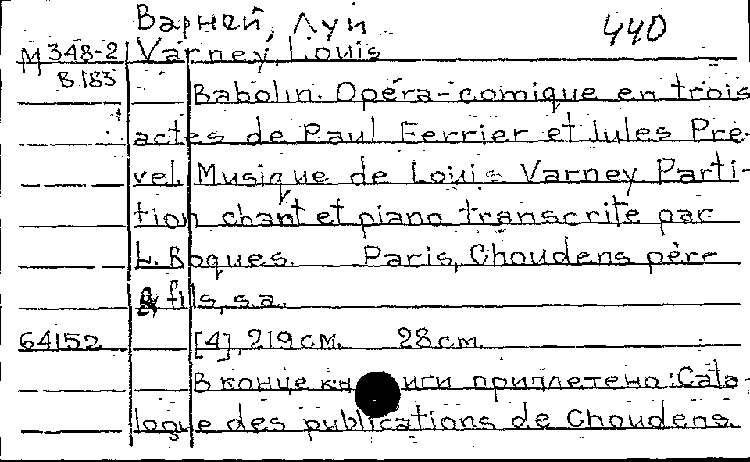 Варней, Луи 440
М 348-2 Varney, Louis
В 183
Babolin. Opéra-comique en trois
actes de Paul Ferrier et Jules Pré-
vel. Musique de Louis Varney Parti-
tion chant et piano transcrite par
L. Roques. Paris, Choudens père
& fils, s.a.
64152 [4], 219 см. 28 cm.
В конце книги приплетено: Cata-
logue des publications de Choudens.